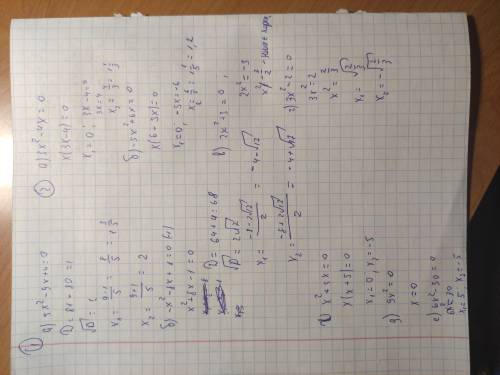 ① а) 5x²-9x+4=0
D=81-80=1
√D=1
x₁=(9-1)/5=8/5=1 3/5
x₂=(9+1)/5=2
б) -x²-8x+1=0 |(-1)
x²+8x-1=0
D=64+4=68
√D=2√17
x₁=(-8-2√17)/2=-4-√17
x₂=(-8+2√17)/2=-4+√17
x²+5x=0
x(x+5)=0
x₁=0; x₂=-5
д) 9x²=0
x=0
е) 6x²-30=0
6x²=30
x₁=5, x₂=-5
② а) 3x²-4x=0
x(3x-4)=0
x₁=0; 3x-4=0
3x=4
x₂=4/3=1 1/3
б) -5x²+6x=0
x(6-5x)=0
x₁=0; -5x=-6
x₂=6/5=1 1/5=1,2
в) 2x²+3=0;
2x²=-3
г) 3x²-2=0
3x²=2
x²=2/3
x₁=√(2/3)
x₂=-√(2/3)